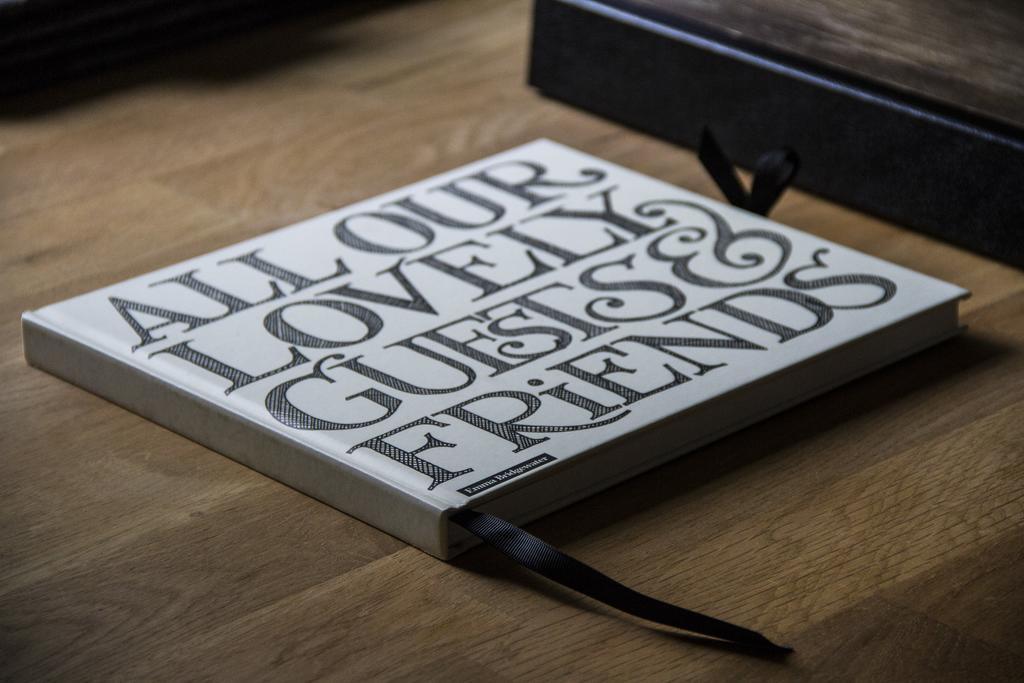 ALL OUR
LOVELY
GUESTS &
FRiENDS
Emma Bridgewater